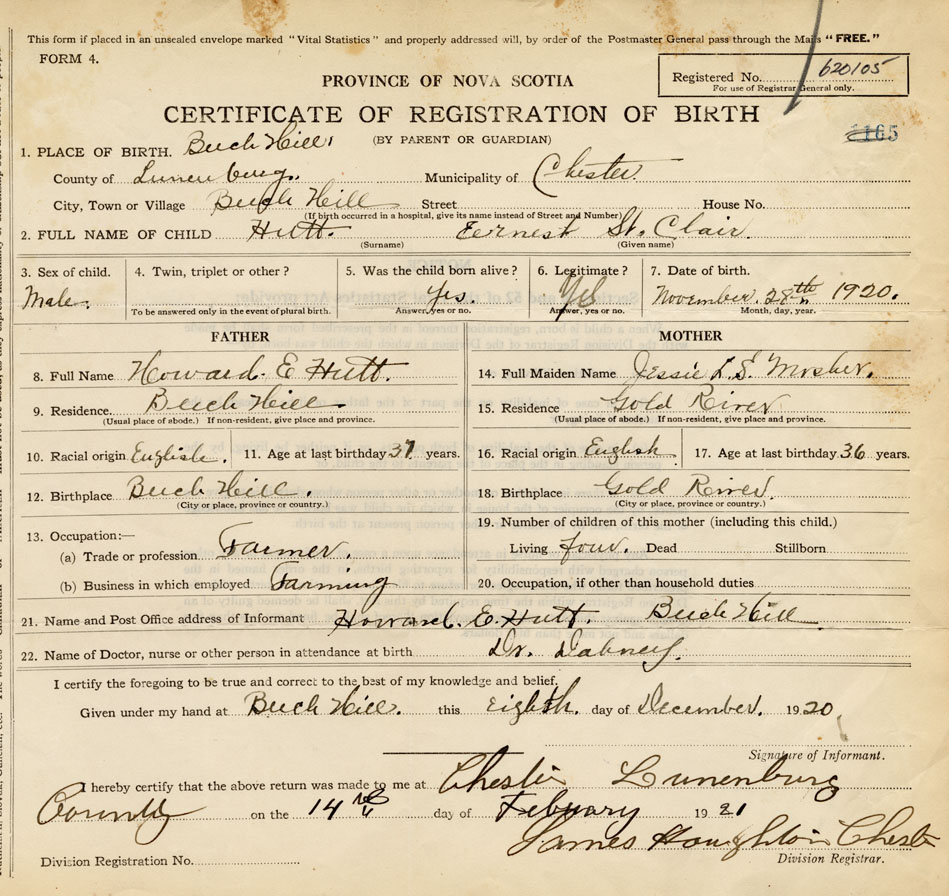 This form if placed in an unsealed envelope marked "Vital Statistics" and properly addressed will, by order of the Postmaster General pass through the Mails "FREE."
FORM 4.
PROVINCE OF NOVA SCOTIA
Registered No. 620105
For use of Registrar General only.
CERTIFICATE OF REGISTRATION OF BIRTH
(BY PARENT OR GUARDIAN)
1165
1. PLACE OF BIRTH. Beech Hill
County of Lunenburg. Municipality of Chester.
City, Town or Village Beech Hill Street House No.
(If birth occurred in a hospital, give its name instead of Street and Number)
2. FULL NAME OF CHILD Hutt. Eernest St. Clair.
(Surname) (Given name)
3. Sex of child. 4. Twin, triplet or other? 5. Was the child born alive? 6. Legitimate? 7. Date of birth.
Male. Yes. Yes November. 28th 1920.
To be answered only in the event of plural birth. Answer, yes or no. Answer, yes or no. Month, day, year.
FATHER MOTHER
8. Full Name Howard. E Hutt. 14. Full Maiden Name Jessie L. S. Mosher.
9. Residence. Beech Hill 15. Residence Gold River
(Usual place of abode.) If non-resident, give place and province. (Usual place of abode.) If non-resident, give place and province.
10. Racial origin English. 11. Age at last birthday 37 years. 16. Racial origin English. 17. Age at last birthday. 36 years.
12. Birthplace Beech Hill. 18. Birthplace Gold River.
(City or place, province or country.) (City or place, province or country.)
13. Occupation:— 19. Number of children of this mother (including this child.)
(a) Trade or profession. Farmer. Living four. Dead Stillborn
(b) Business in which employed Farming 20. Occupation, if other than household duties
21. Name and Post Office address of Informant Howard. E. Hutt. Beech Hill
22. Name of Doctor, nurse or other person in attendance at birth Dr. Dabney.
I certify the foregoing to be true and correct to the best of my knowledge and belief.
Given under my hand at Beech Hill. this Eighth. day of December. 1920
Signature of Informant.
I hereby certify that the above return was made to me at Chester Lunenburg
County on the 14 day of Febuary 1921
James Houghton Chester
Division Registration No. Division Registrar.